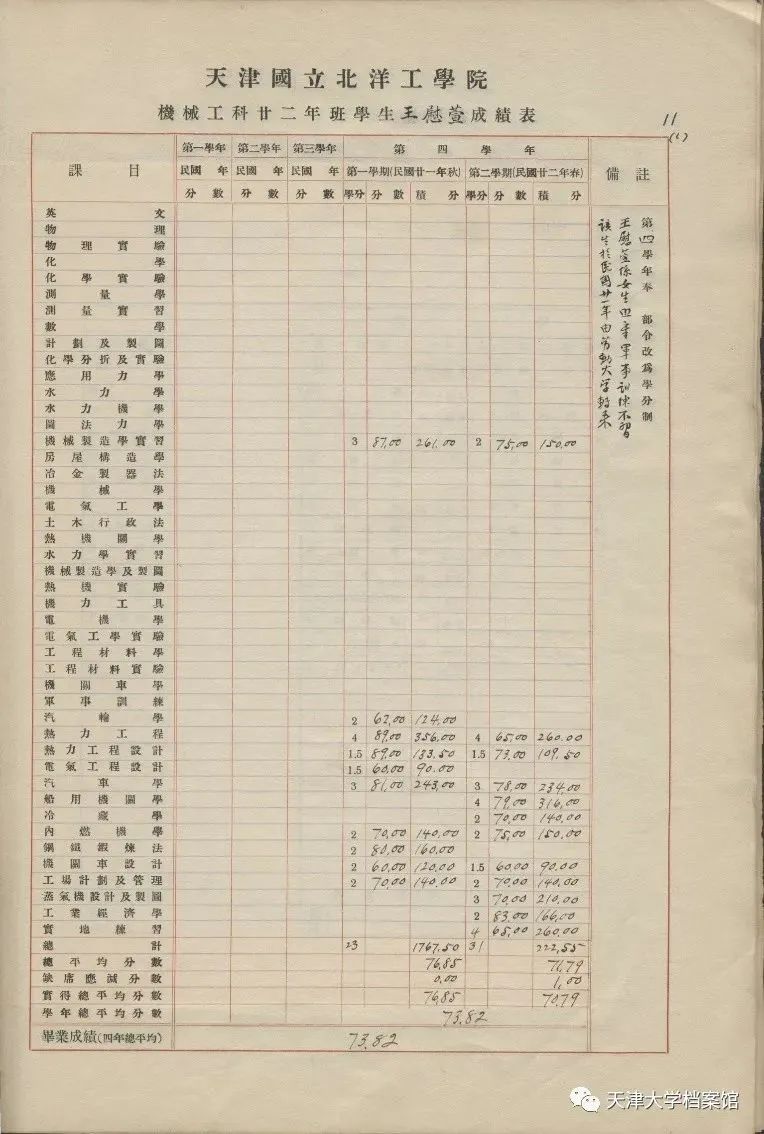 天津國立北洋工學院
機械工科廿二年班學生王慰萱成績表
11
(1)
課目 第一學年 第二學年 第三學年 第四學年 備註
民國 年 民國 年 民國 年 第一學期(民國廿一年秋) 第二學期(民國廿二年春)
分數 分數 分數 學分 分數 積分 學分 分數 積分
第四學年奉 部令改為學分制
王慰萱係女生四年軍事訓練不習
該生於民國廿一年由勞動大學轉來
英文
物理
物理實驗
化學
化學實驗
測量學
測量實習
數學
計劃及製圖
化學分折及實驗
應用力學
水力學
水力機學
圖法力學
機械製造學實習 3 87.00 261.00 2 75.00 150.00
房屋構造學
冶金製器法
機械學
電氣工學
土木行政法
熱機關學
水力學實習
機械製造學及製圖
熱機實驗
機力工具
電機學
電氣工學實驗
工程材料學
工程材料實驗
機關車學
軍事訓練
汽輪學 2 62.00 124.00
熱力工程 4 89.00 356.00 4 65.00 260.00
熱力工程設計 1.5 89.00 133.50 1.5 73.00 109.50
電氣工程設計 1.5 60.00 90.00
汽車學 3 81.00 243.00 3 78.00 234.00
船用機關學 4 79.00 316.00
冷藏學 2 70.00 140.00
內燃機學 2 70.00 140.00 2 75.00 150.00
鋼鐵鍛煉法 2 80.00 160.00
機關車設計 2 60.00 120.00 1.5 60.00 90.00
工場計劃及管理 2 70.00 140.00 2 70.00 140.00
蒸氣機設計及製圖 3 70.00 210.00
工業經濟學 2 83.00 166.00
實地練習 4 65.00 260.00
總計 23 1767.50 31 222,5.5
總平均分數 76.85 71.79
缺席應減分數 0.00 1.00
實得總平均分數 76.85 70.79
學年總平均分數 73.82
畢業成績(四年總平均) 73.82
天津大学档案馆